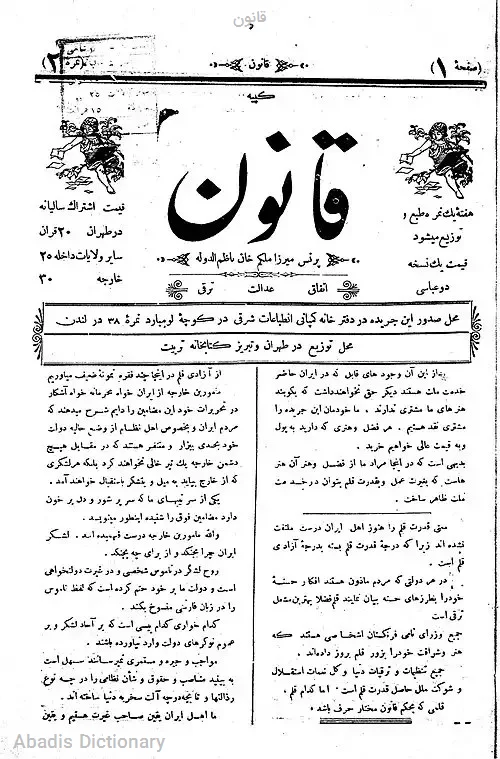 قانون
(صفحهٔ ۱)
قانون
(نمرهٔ ۲)
قانون
هفتهٔ یک نمره طبع و
توزیع میشود
قیمت یک نسخه
دو عباسی
قیمت اشتراک سالیانه
در طهران ۲۰ قران
سایر ولایات داخله ۲۵
خارجه ۳۰
پرنس میرزا ملکم خان ناظم الدوله
اتفاق عدالت ترقی
محل صدور این جریده در دفتر خانه کمپانی انطباعات شرقی در کوچهٔ لومبارد نمرهٔ ۳۸ در لندن
محل توزیع در طهران و تبریز کتابخانه تربیت
بعد از این آن وجود های قابل که در ایران حاضر
خدمت ملت هستند دیگر حق نخواهند داشت که بگویند
هنر های ما مشتری ندارند ۰ ما خودمان این جریده را
مشتری نقد هستیم ۰ هر فضل و هنری که دارید به پول
و به قیمت عالی خواهیم خرید ۰
بدیهی است که در اینجا مراد ما از فضل و هنر آن هنر
هاست که بغیرت عمل و بقدرت قلم بتوان در خدمت
ملت ظاهر ساخت ۰
معنی قدرت قلم را هنوز اهل ایران درست ملتفت
نشده اند زیرا که درجهٔ قدرت قلم بسته بدرجهٔ آزادی
قلم است ۰
در هر دولتی که مردم ماذون هستند افکار حسنهٔ
خود را بطرزهای حسنه بیان نمایند قلم فضلا بهترین مشعل
ترقی است
جمیع وزرای نامی فرنگستان اشخاصی هستند که
هنر و شرافت خود را بزور قلم بروز داده اند ۰
جمیع تنظیمات و ترقیات دنیا و کل نعمات استقلال
و شوکت ملل حاصل قدرت قلم است ۰ اما کدام قلم ۰
قلمی که بحکم قانون مختار حرف باشد ۰
از آزادی قلم در اینجا چند فقره نمونهٔ ضعیف میاوریم
مامورین خارجه از ایران خواه محرمانه خواه آشکار
در تحریرات خود این مضامین را دایم شرح میدهند که
مردم ایران و بخصوص اهل نظام از وضع حالیه دولت
خود بحدی بیزار و متنفر هستند که در مقابل هیچ
دشمن خارجه یک تیر خالی نخواهند کرد بلکه هر لشکری
که از خارج بیاید به میل و بتشکر باستقبال خواهند آمد ۰
یکی از سرتیپهای ما که سر پر شور و دل پر خون
دارد مضامین فوق را شنیده اینطور مینویسد ۰
والله مامورین خارجه درست فهمیده اند ۰ لشکر
ایران چرا بجنگد و از برای چه بجنگد ۰
روح لشکر در ناموس شخصی و در غیرت دولتخواهی
است و دولت ما بر خود حتم کرده است که لفظ ناموس
را در زبان فارسی منسوخ بکند ۰
کدام خواری کدام پیسی است که بر آحاد لشکر و بر
عموم نوکرهای دولت وارد نیاورده باشند ۰
مواجب و جیره و مستمری نمیرسانند سهل است
به بینید مناصب و حقوق و شأن نظامی را در چه نوع
رذالتها و تا بچه درجه آلت سخریه دنیا ساخته اند ۰
ما اهل ایران یقین صاحب غیرت هستیم و یقین
Abadis Dictionary